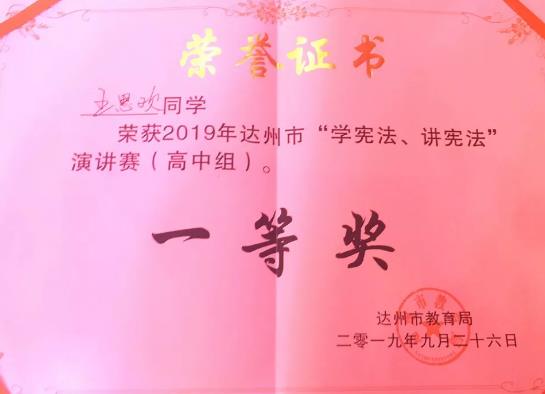 荣誉证书
王思欢同学
荣获2019年达州市“学宪法、讲宪法”
演讲赛（高中组）。
一等奖
达州市教育局
二零一九年九月二十六日